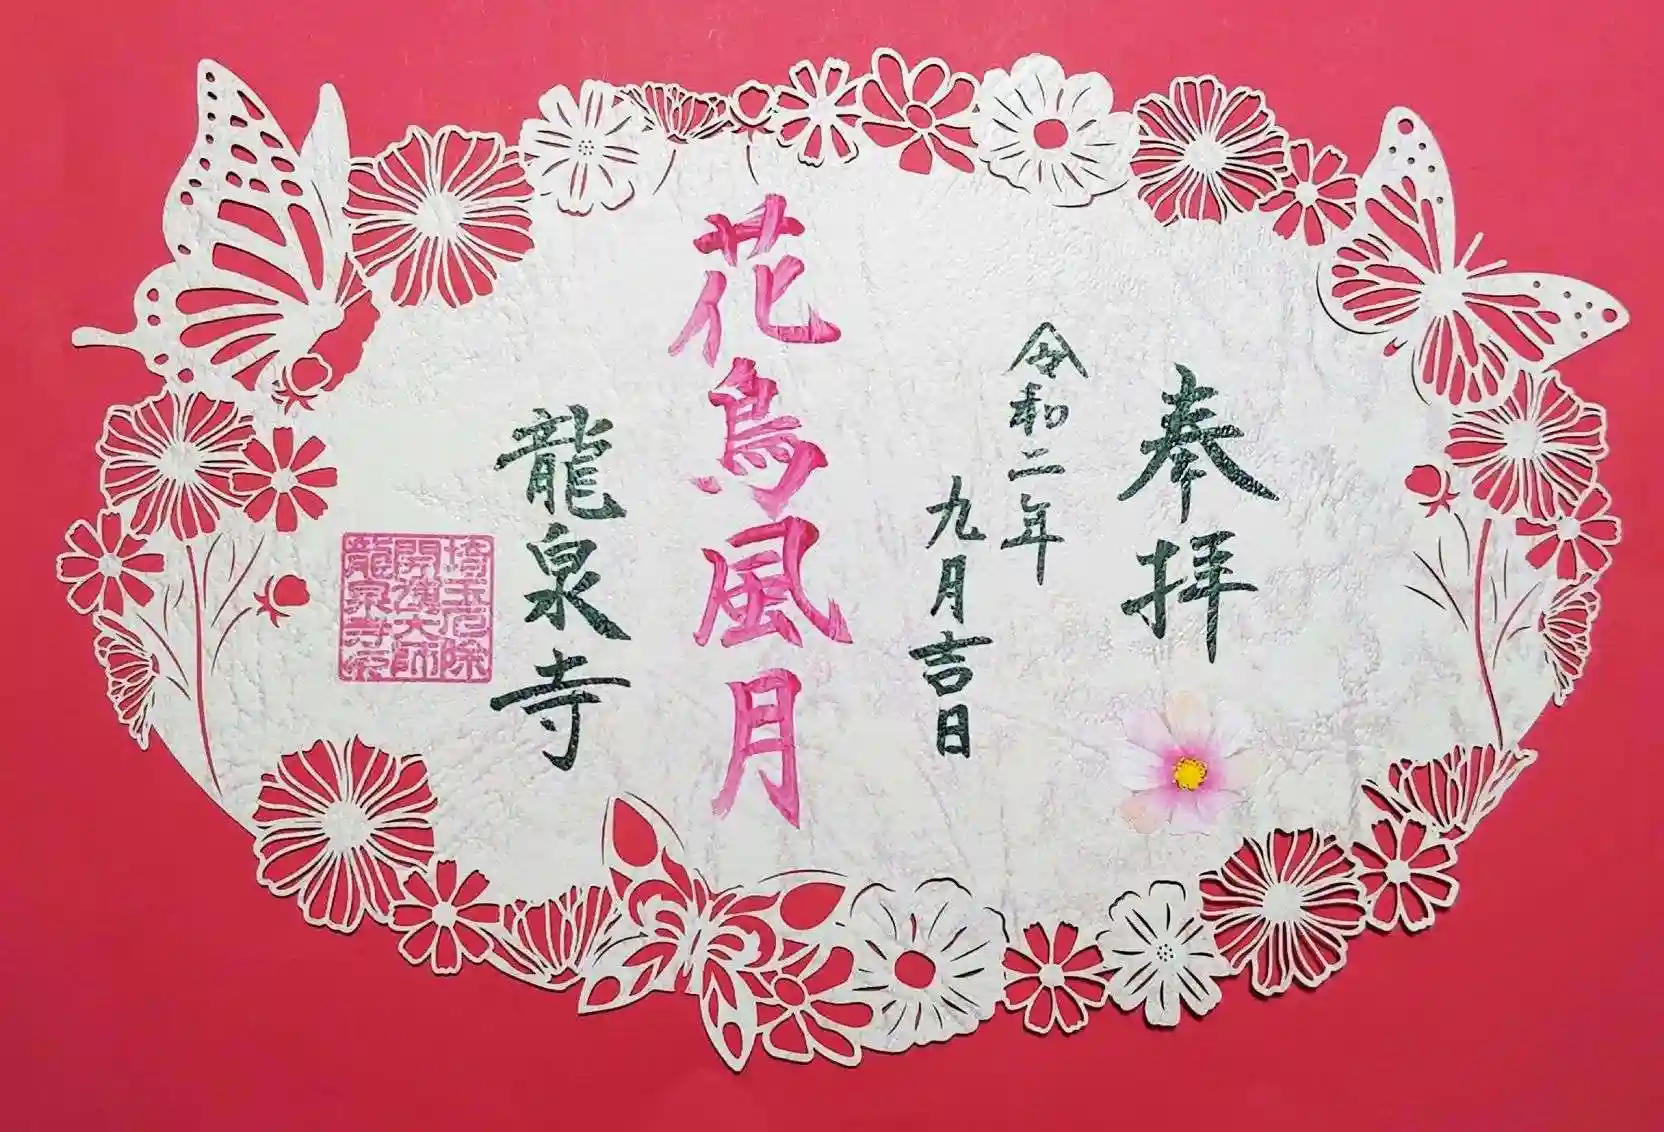 奉拝
令和二年
九月吉日
花鳥風月
龍泉寺
埼玉厄除
開運大師
龍泉寺印